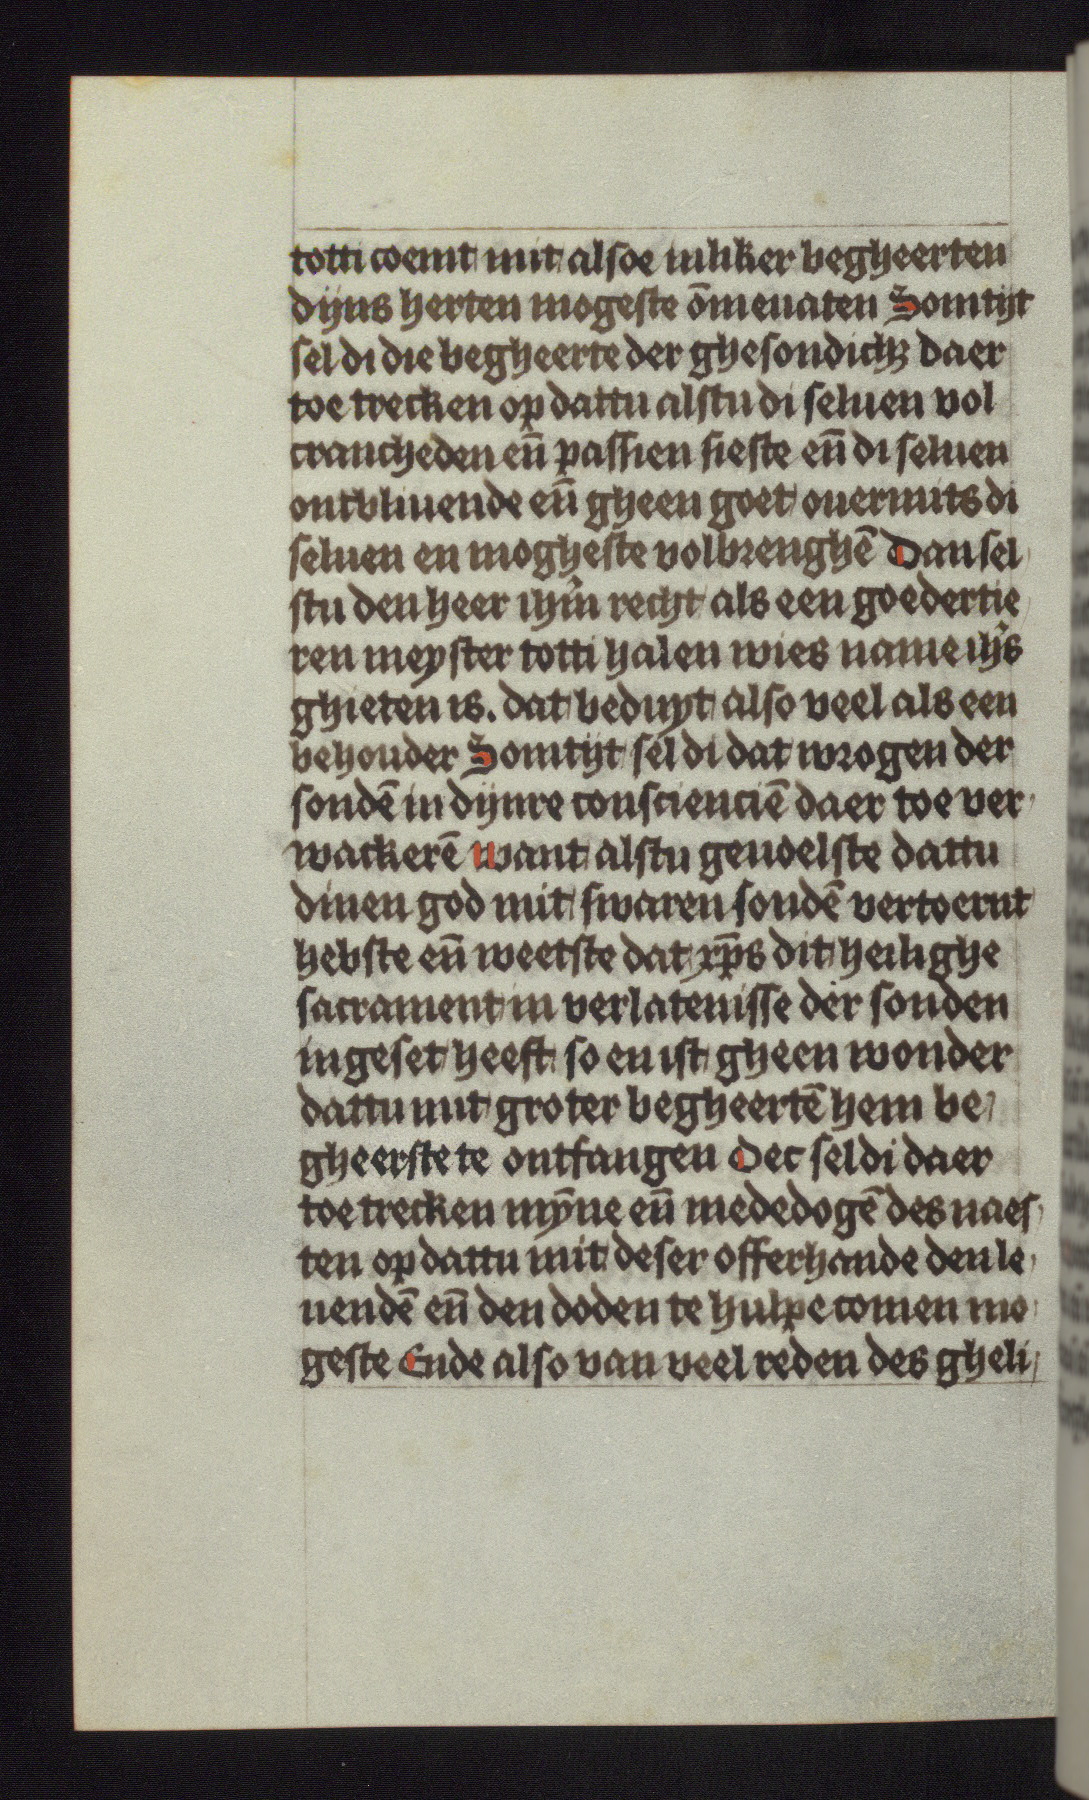 totti coemt mit alsoe inliker begheerten
dijns herten mogeste ōmeuaten Somtijt
sel di die begheerte der ghesondichz daer
toe trecken op dattu alstu di seluen vol
crancheden eñ passien sieste eñ di seluen
ontbliuende eñ gheen goet ouermits di
seluen en mogheste volbrenghē Dan sel
stu den heer ihm̄ recht als een goedertie
ren meyster totti halen wies name ihs̄
ghieten is. dat beduyt also veel als een
behouder Somtijt sel di dat wrogen der
sondē in dijnre conscienciē daer toe ver
wackerē want alstu geuoelste dattu
dinen god mit swaren sondē vertoernt
hebste eñ weetste dat xp̄s dit heilighe
sacrament in verlatenisse der sonden
ingeset heeft so en ist gheen wonder
dattu mit groter begheertē hem be
gheerste te ontfangen Oec sel di daer
toe trecken mȳne eñ mededogē des naes
ten op dattu mit deser offerhande den le
uendē eñ den doden te hulpe comen mo
geste Ende also van veel reden des gheli